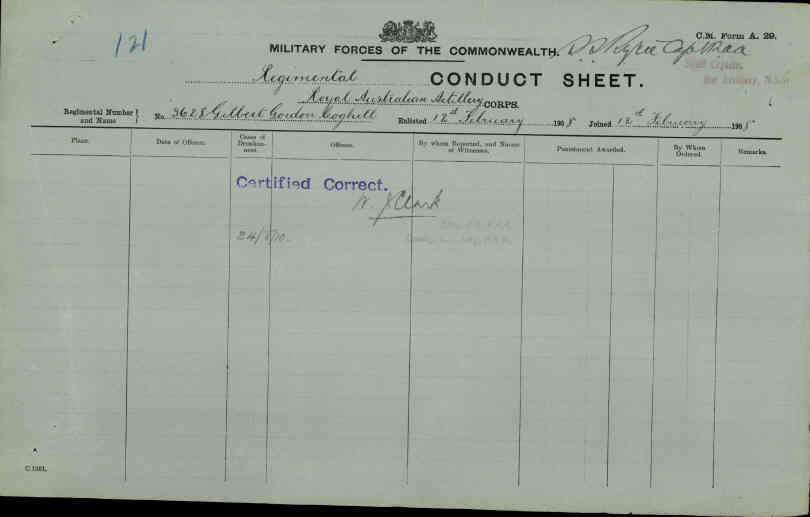 121
C.M. Form A. 29.
MILITARY FORCES OF THE COMMONWEALTH.
Staff Captain,
Regimental CONDUCT SHEET.
Royal Australian Artillery CORPS.
Regimental Number and Name } No. 3628 Gilbert Gordon Coghill Enlisted 12th February 1908 Joined 12th February 1908
Place. Date of Offence. Cases of Drunkenness. Offence. By whom Reported, and Names of Witnesses. Punishment Awarded. By Whom Ordered. Remarks.
Certified Correct.
Clark
24/8/10.
C.1361.